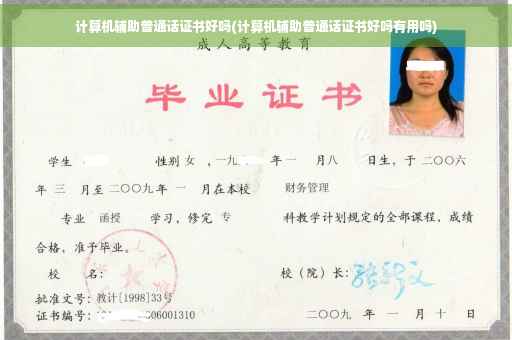 计算机辅助普通话证书好吗(计算机辅助普通话证书好吗有用吗)
成人高等教育
毕业证书
学生 性别 女 ，一九 年 一 月 八 日生，于 二〇〇六
年 三 月至 二〇〇九 年 一 月在本校 财务管理
专业 函授 学习，修完 专 科教学计划规定的全部课程，成绩
合格，准予毕业。
校 名： 校（院）长：
批准文号：教计[1998]33号
证书编号： 006001310 二〇〇九 年 一 月 十 日